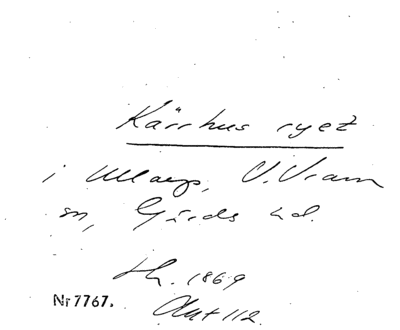 Kärrhus ryet
i Maap, V. Vram
sn, Gärds hd.
sk. 1869
Nr 7767.
Akt 112.